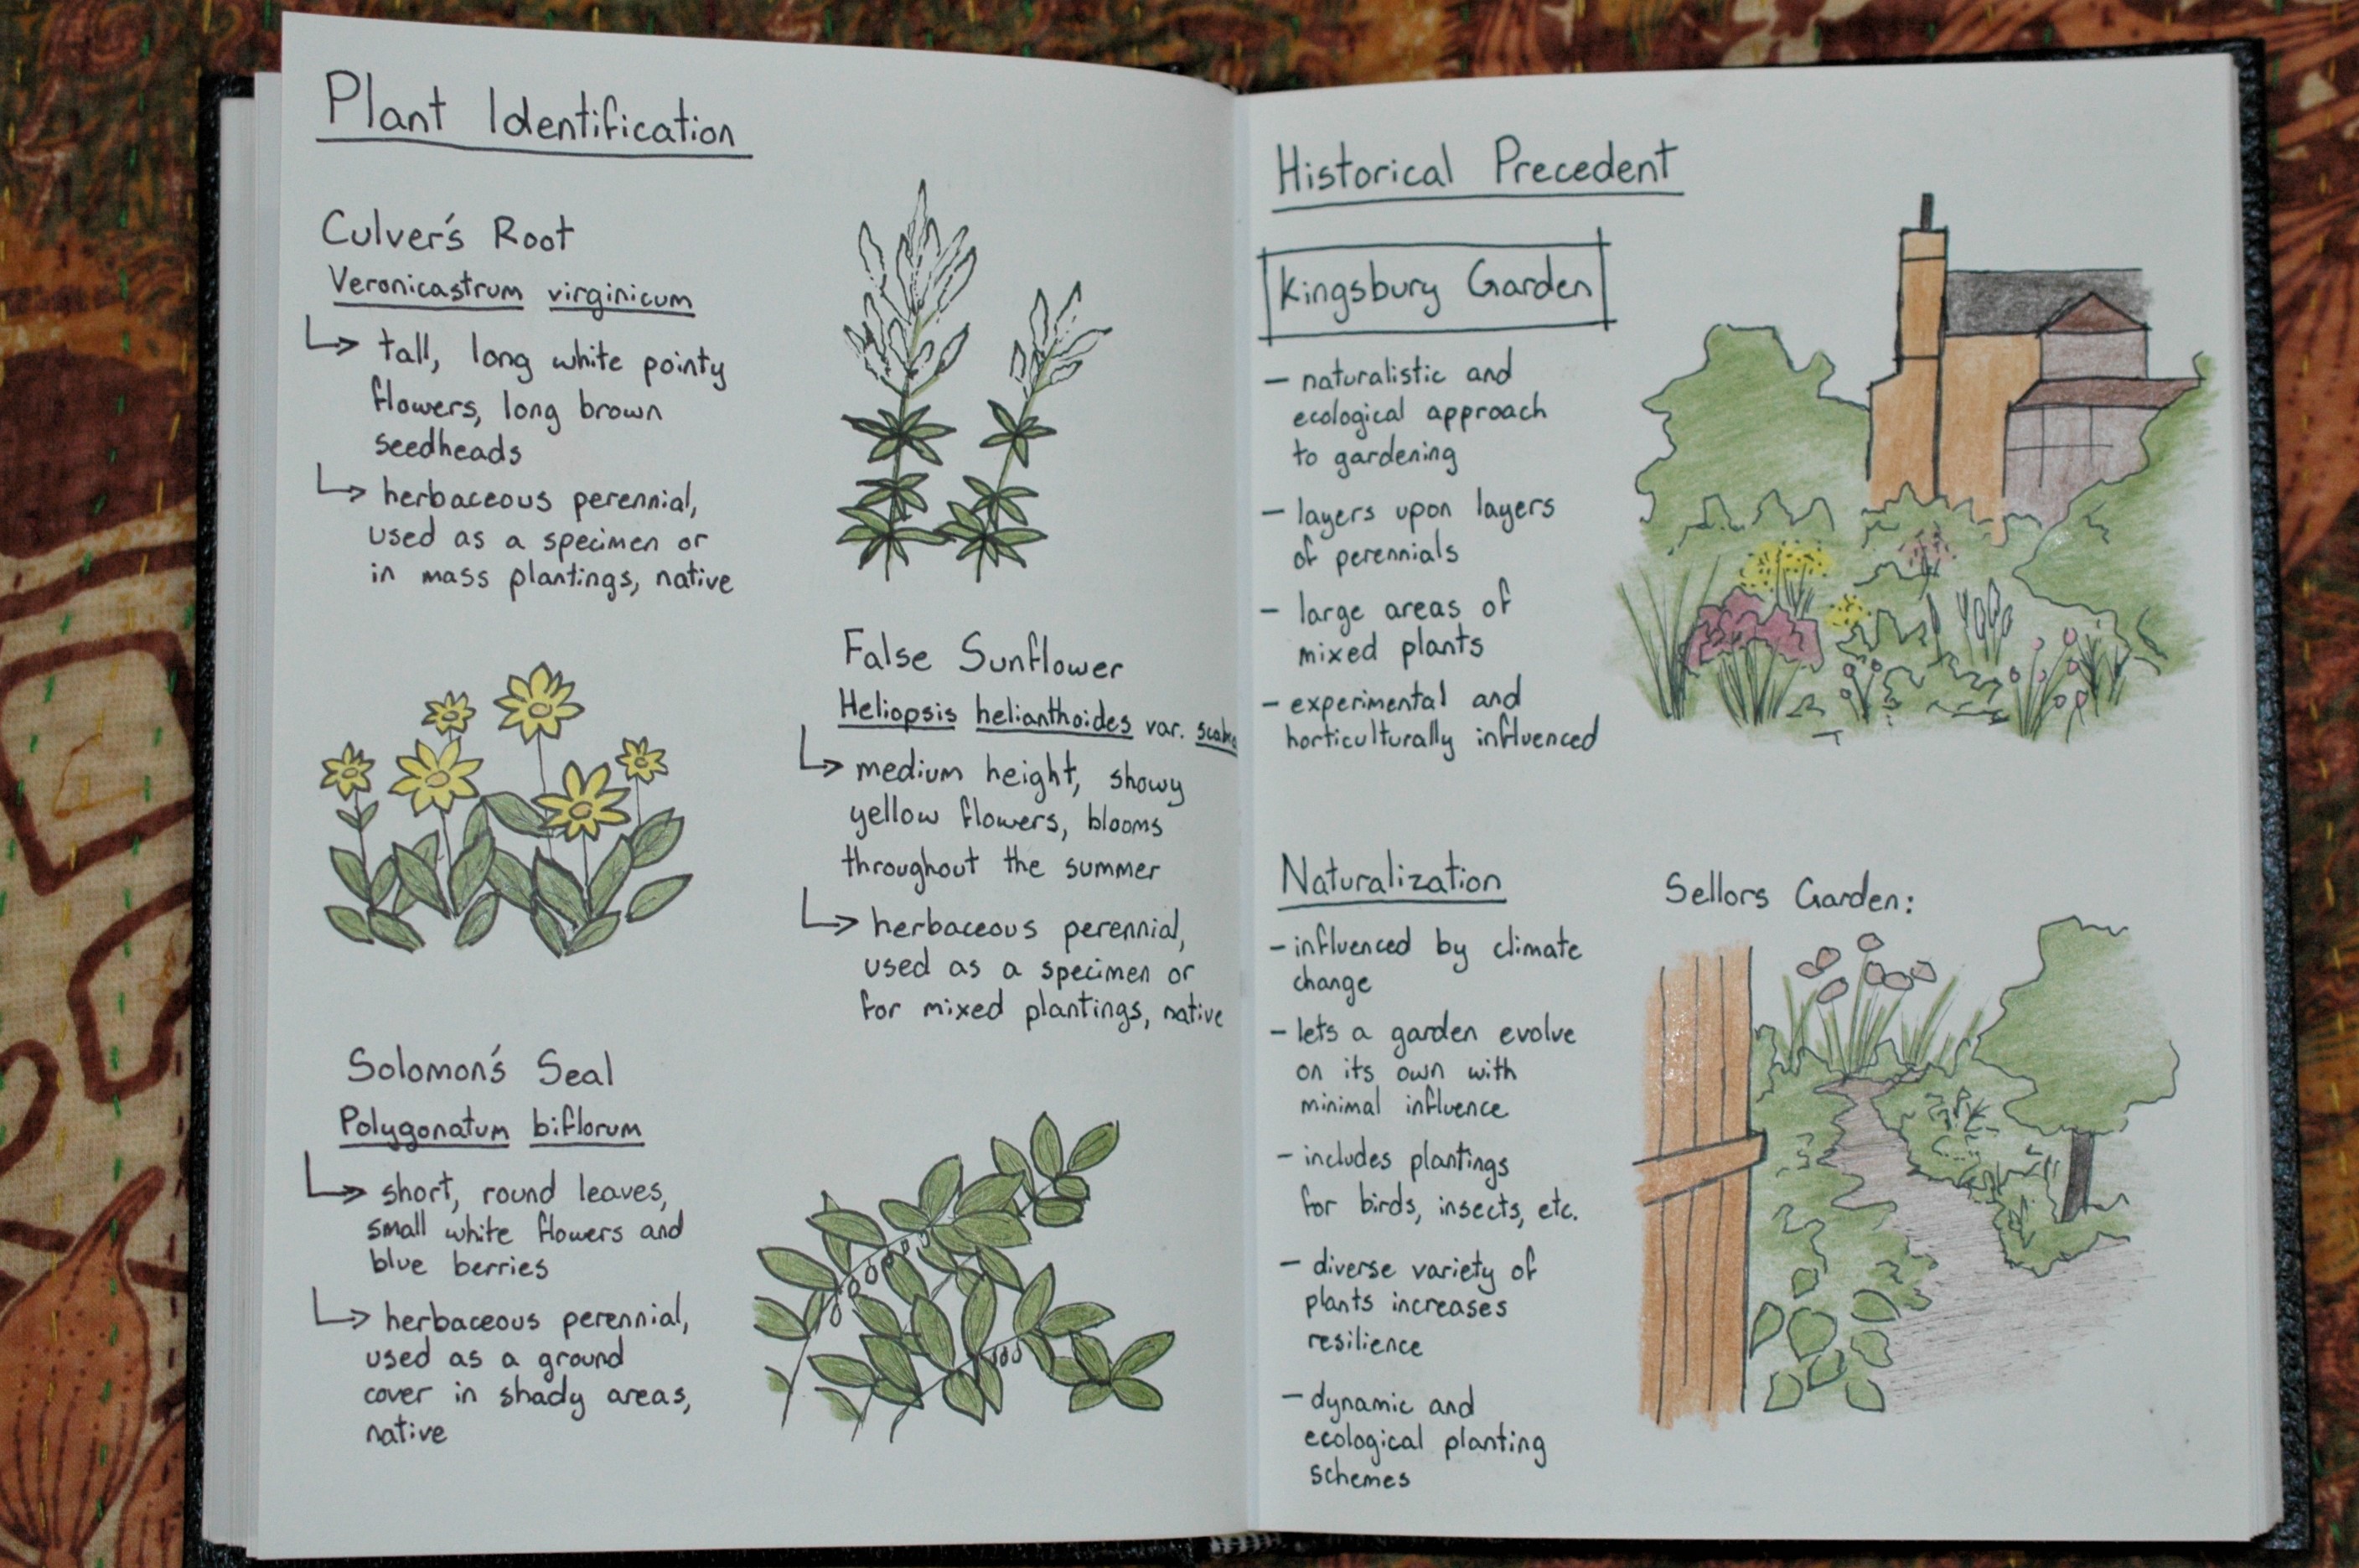 Plant Identification
Culver's Root
Veronicastrum virginicum
tall, long white pointy
flowers, long brown
seedheads
herbaceous perennial,
used as a specimen or
in mass plantings, native
False Sunflower
Heliopsis helianthoides var. scabra
medium height, showy
yellow flowers, blooms
throughout the summer
herbaceous perennial,
used as a specimen or
for mixed plantings, native
Solomon's Seal
Polygonatum biflorum
short, round leaves,
small white flowers and
blue berries
herbaceous perennial,
used as a ground
cover in shady areas,
native
Historical Precedent
Kingsbury Garden
- naturalistic and
ecological approach
to gardening
- layers upon layers
of perennials
- large areas of
mixed plants
- experimental and
horticulturally influenced
Naturalization
- influenced by climate
change
- lets a garden evolve
on its own with
minimal influence
- includes plantings
for birds, insects, etc.
- diverse variety of
plants increases
resilience
- dynamic and
ecological planting
schemes
Sellors Garden: